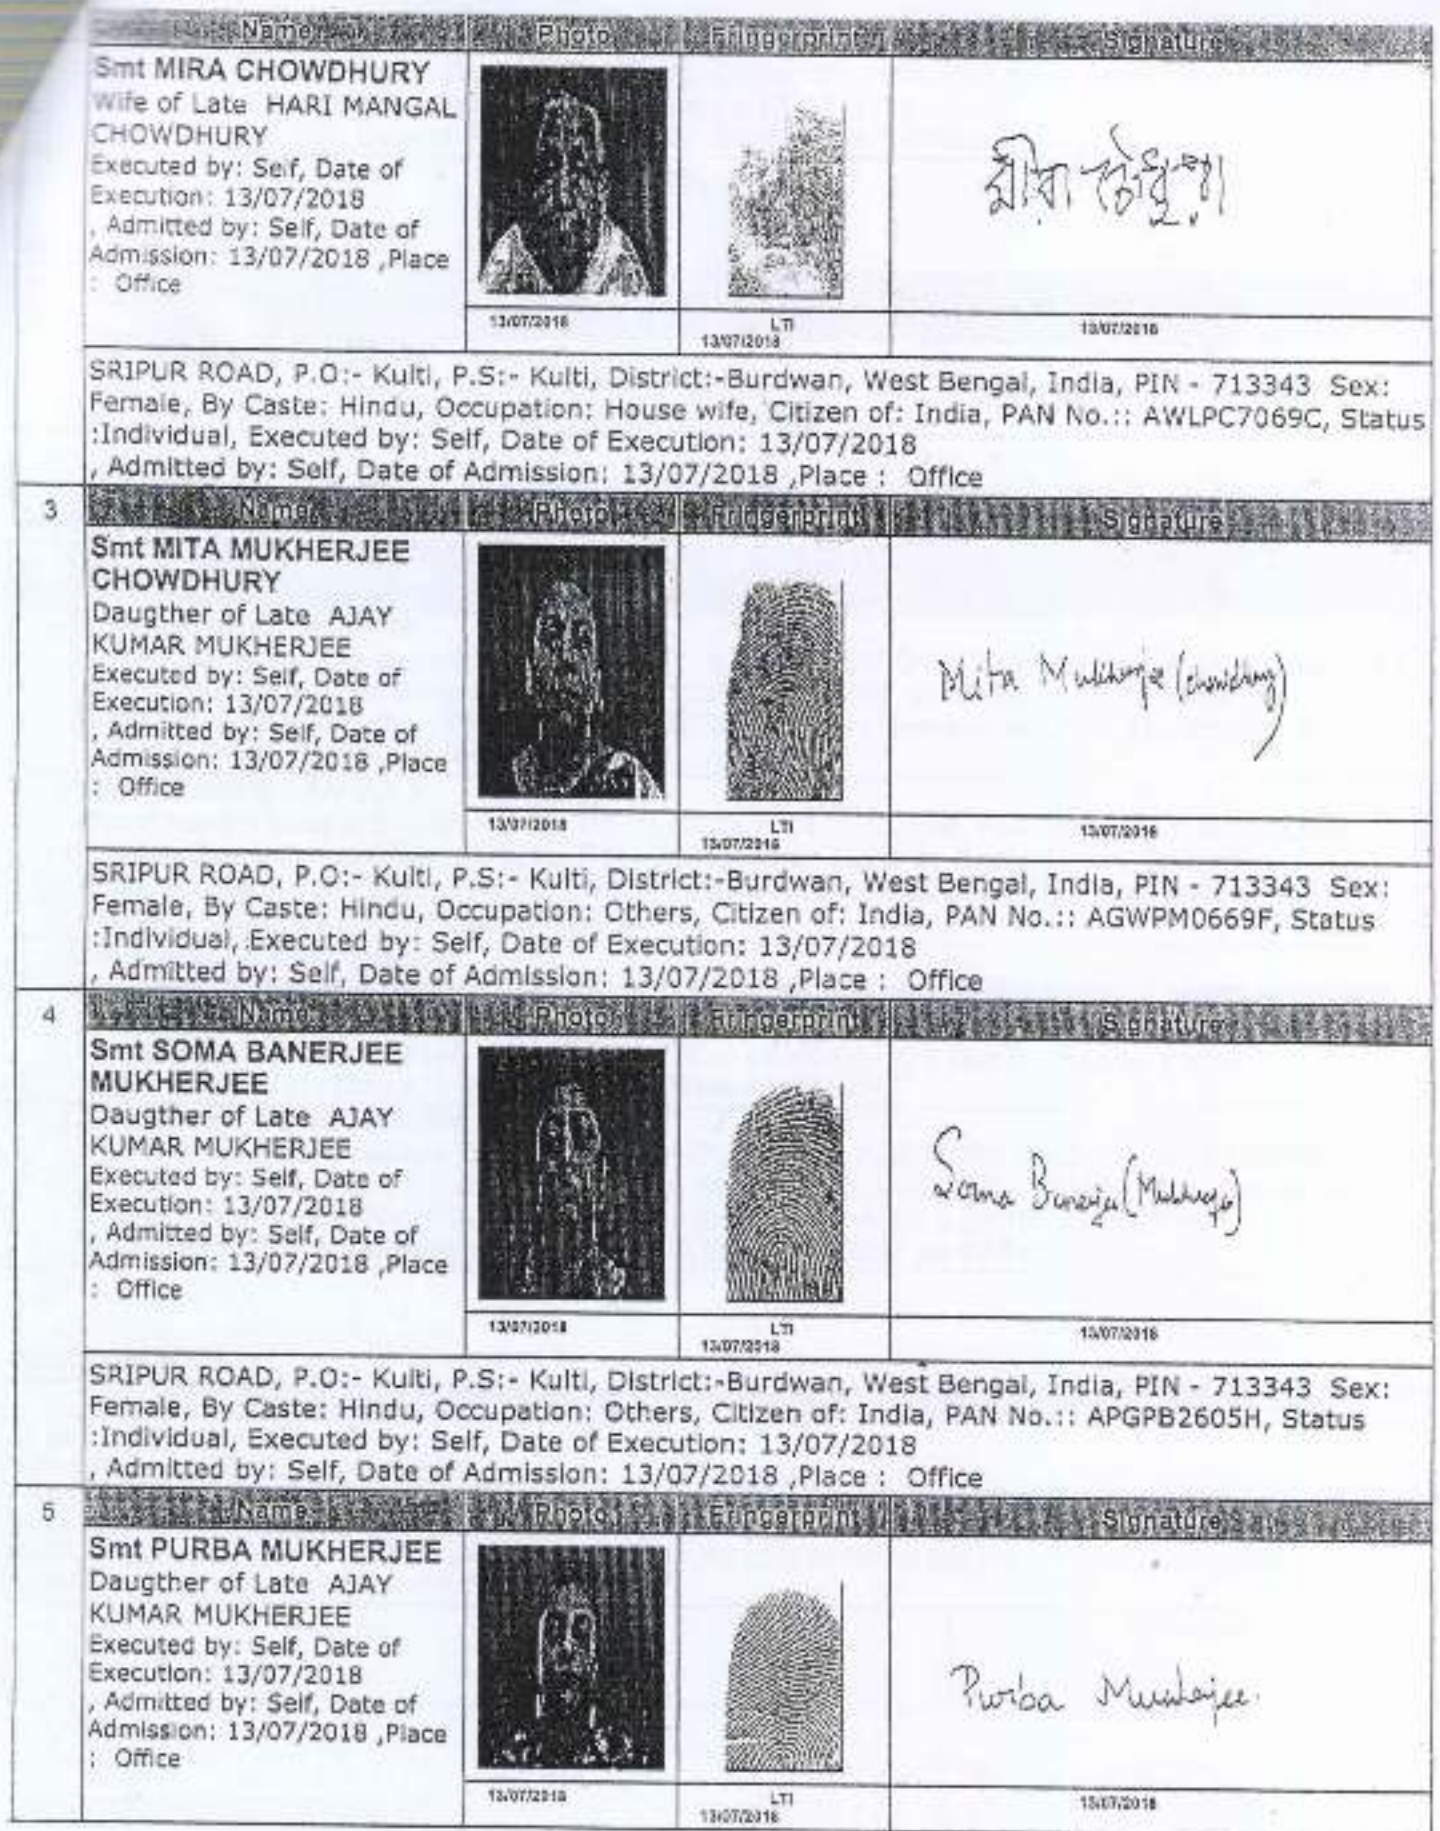 Name Photo Fringerprint Signature
Smt MIRA CHOWDHURY
Wife of Late HARI MANGAL
CHOWDHURY
Executed by: Self, Date of
Execution: 13/07/2018
, Admitted by: Self, Date of
Admission: 13/07/2018 ,Place
: Office
মীরা চৌধুরী
13/07/2018 LTI 13/07/2018
13/07/2018
SRIPUR ROAD, P.O:- Kulti, P.S:- Kulti, District:-Burdwan, West Bengal, India, PIN - 713343 Sex:
Female, By Caste: Hindu, Occupation: House wife, Citizen of: India, PAN No.:: AWLPC7069C, Status
:Individual, Executed by: Self, Date of Execution: 13/07/2018
, Admitted by: Self, Date of Admission: 13/07/2018 ,Place : Office
3 Name Photo Fringerprint Signature
Smt MITA MUKHERJEE
CHOWDHURY
Daugther of Late AJAY
KUMAR MUKHERJEE
Executed by: Self, Date of
Execution: 13/07/2018
, Admitted by: Self, Date of
Admission: 13/07/2018 ,Place
: Office
Mita Mukherjee (chowdhury)
13/07/2018 LTI 13/07/2018
13/07/2018
SRIPUR ROAD, P.O:- Kulti, P.S:- Kulti, District:-Burdwan, West Bengal, India, PIN - 713343 Sex:
Female, By Caste: Hindu, Occupation: Others, Citizen of: India, PAN No.:: AGWPM0669F, Status
:Individual, Executed by: Self, Date of Execution: 13/07/2018
, Admitted by: Self, Date of Admission: 13/07/2018 ,Place : Office
4 Name Photo Fringerprint Signature
Smt SOMA BANERJEE
MUKHERJEE
Daugther of Late AJAY
KUMAR MUKHERJEE
Executed by: Self, Date of
Execution: 13/07/2018
, Admitted by: Self, Date of
Admission: 13/07/2018 ,Place
: Office
Soma Banerjee (Mukherjee)
13/07/2018 LTI 13/07/2018
13/07/2018
SRIPUR ROAD, P.O:- Kulti, P.S:- Kulti, District:-Burdwan, West Bengal, India, PIN - 713343 Sex:
Female, By Caste: Hindu, Occupation: Others, Citizen of: India, PAN No.:: APGPB2605H, Status
:Individual, Executed by: Self, Date of Execution: 13/07/2018
, Admitted by: Self, Date of Admission: 13/07/2018 ,Place : Office
5 Name Photo Fringerprint Signature
Smt PURBA MUKHERJEE
Daugther of Late AJAY
KUMAR MUKHERJEE
Executed by: Self, Date of
Execution: 13/07/2018
, Admitted by: Self, Date of
Admission: 13/07/2018 ,Place
: Office
Purba Mukherjee.
13/07/2018 LTI 13/07/2018
13/07/2018